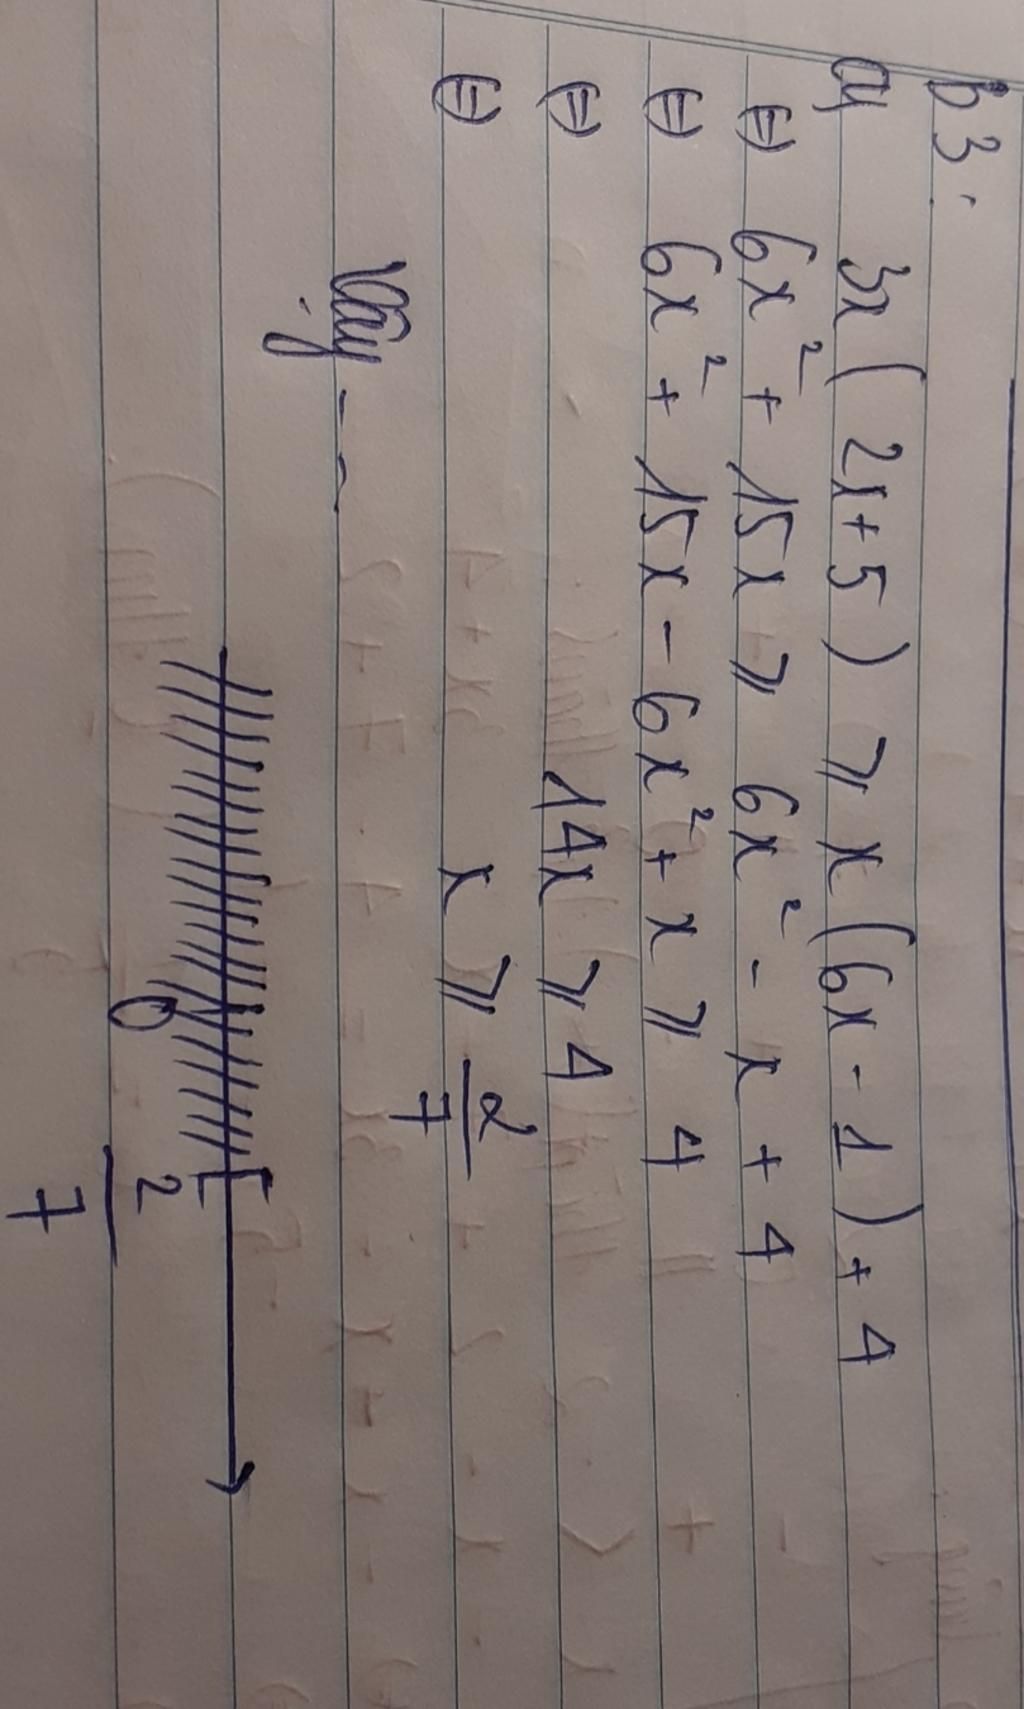 B3.
a) 3x(2x+5) ⩾ x(6x-1)+4
⇔ 6x² + 15x ⩾ 6x² - x + 4
⇔ 6x² + 15x - 6x² + x ⩾ 4
⇔ 14x ⩾ 4
⇔ x ⩾ 2/7
Vậy --
0 2/7